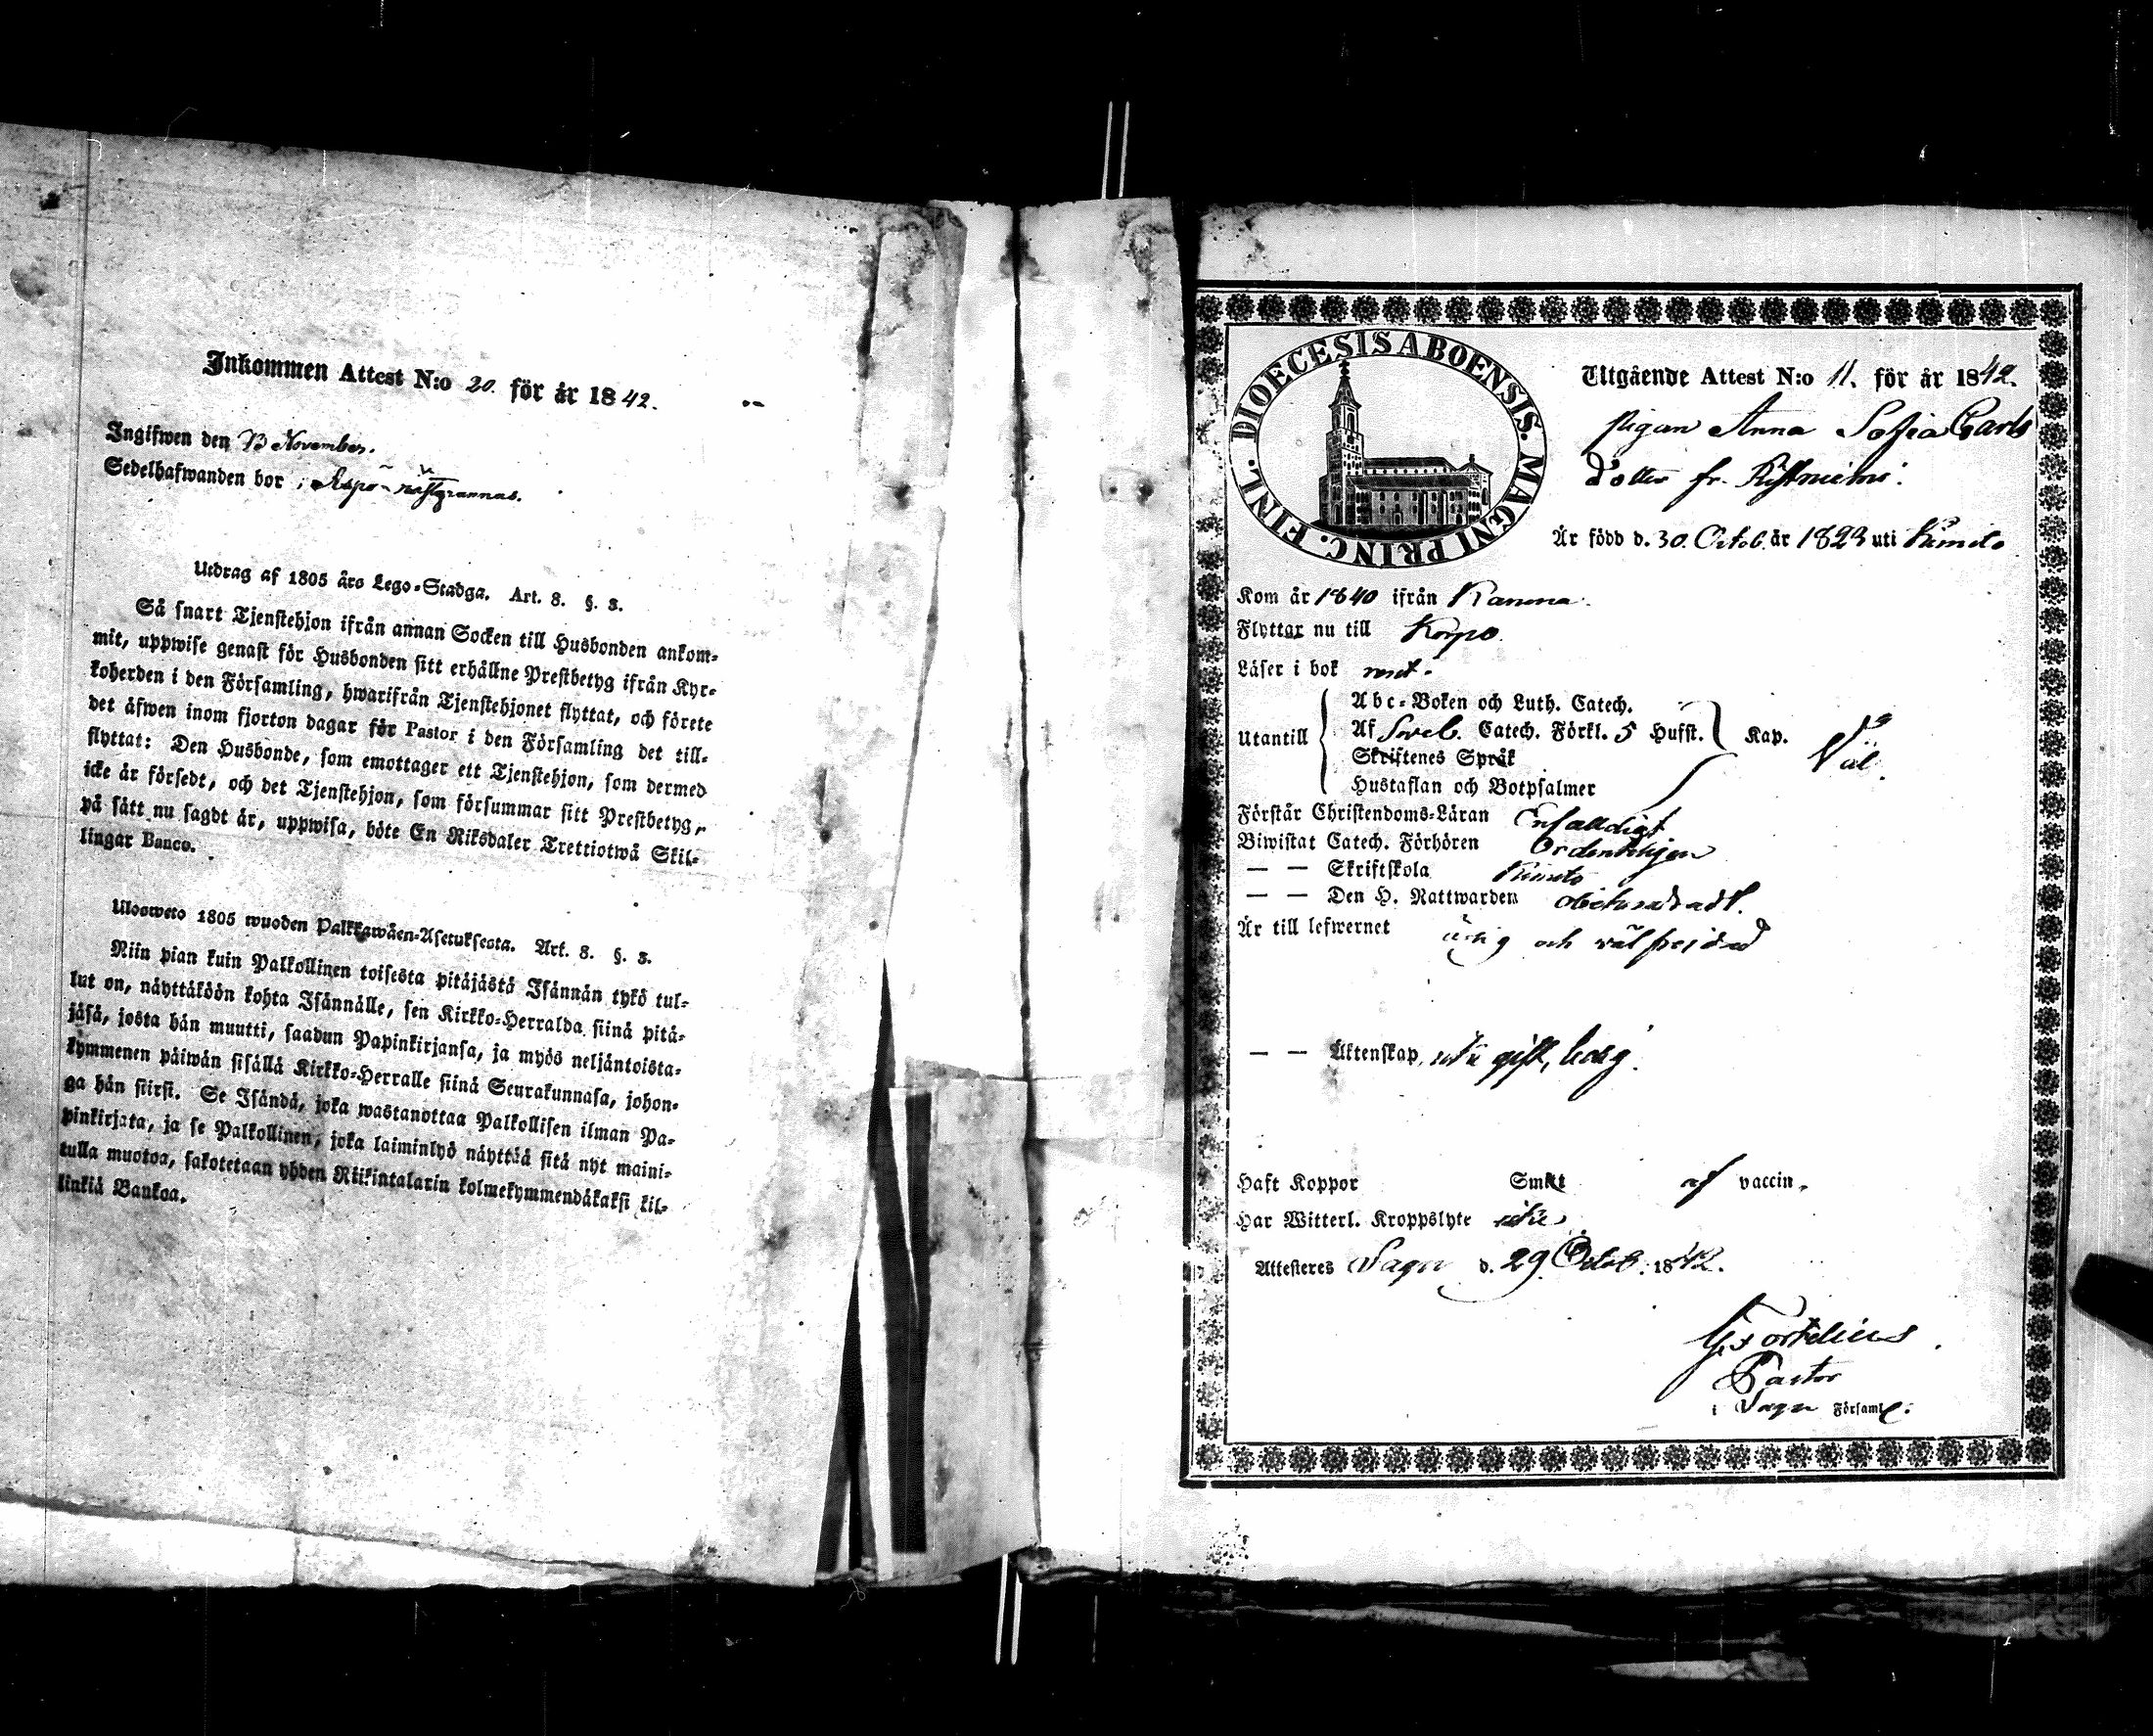 Inkommen Attest N:o 20. för år 1842.
Ingifwen den 13 November.
Sedelhafwanden bor i
Utdrag af 1805 års Lego-Stadga. Art. 8. §. 3.
Så snart Tjenstehjon ifrån annan Socken till Husbonden ankom-
mit, uppwise genast för Husbonden sitt erhållne Prestbetyg ifrån Kyr-
koherden i den Församling, hwarifrån Tjenstehjonet flyttat, och förete
det äfwen inom fjorton dagar för Pastor i den Församling det till-
flyttat: Den Husbonde, som emottager ett Tjenstehjon, som dermed
icke är försedt, och det Tjenstehjon, som försummar sitt Prestbetyg,
på sätt nu sagdt är, uppwisa, böte En Riksdaler Trettiotwå Skil-
lingar Banco.
Ulosweto 1805 wuoden Palkkawäen-Asetuksesta. Art. 8. §. 3.
Niin pian kuin Palkollinen toisesta pitäjästä Isännän tykö tul-
lut on, näyttäköön kohta Isännälle, sen Kirkko-Herralda siinä pitä-
jäsä, josta hän muutti, saadun Papinkirjansa, ja myös neljäntoista-
kymmenen päiwän sisällä Kirkko-Herralle siinä Seurakunnasa, johon-
ga hän siirsi. Se Isändä, joka wastanottaa Palkollisen ilman Pa-
pinkirjata, ja se Palkollinen, joka laiminlyö näyttää sitä nyt maini-
tulla muotoa, sakotetaan yhden Riikintalarin kolmekymmendäkaksi kil-
linkiä Bankoa.
DIOECESIS ABOENSIS. MAGNI PRINC. FINL.
Utgående Attest N:o 11. för år 1842.
pigan Anna Sofia Carls
dotter fr.
Är född d. 30. Octob. år 1823 uti Kimito
Kom år 1840 ifrån
Flyttar nu till Korpo
Läser i bok rent.
Utantill
Abc-Boken och Luth. Catech.
Af Sveb. Catech. Förkl. 5 Hufst. Kap.
Skriftenes Språk
Hustaflan och Botpsalmer
Väl.
Förstår Christendoms-Läran Enfaldigt
Biwistat Catech. Förhören Ordentligen
— — Skriftskola Kimito
— — Den H. Nattwarden obehindradt.
Är till lefwernet ärlig och välfrejdad
— — Äktenskap, icke gift, ledig.
Haft Koppor Smitt af vaccin.
Har Witterl. Kroppslyte icke
Attesteres Sagu d. 29 Octob. 1842.
G. Fortelius
Pastor
i Sagu Församl.